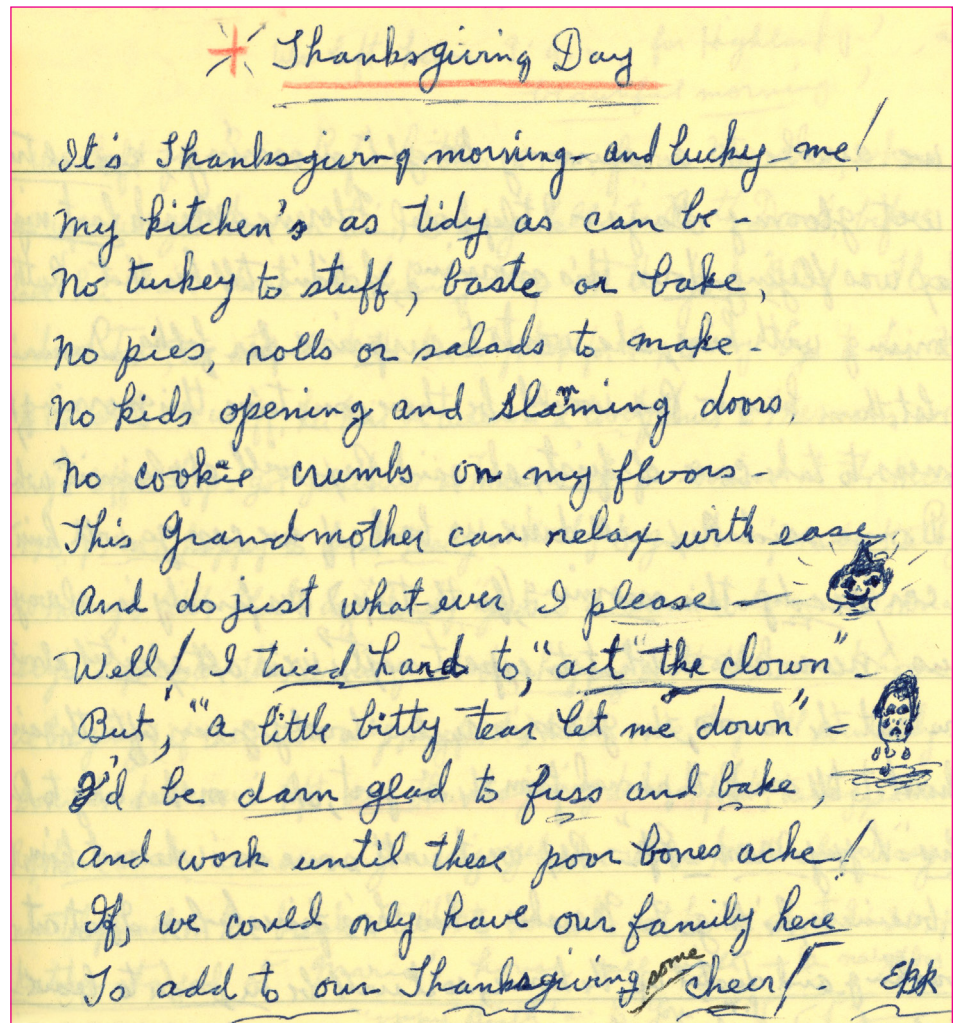 Thanksgiving Day
It's Thanksgiving morning - and lucky - me!
My kitchen's as tidy as can be -
No turkey to stuff, baste or bake,
No pies, rolls or salads to make -
No kids opening and slamming doors,
No cookie crumbs on my floors -
This Grandmother can relax with ease
And do just what ever I please -
Well! I tried hard to, "act "the clown" -
But, "a little bitty tear let me down" -
I'd be darn glad to fuss and bake,
And work until these poor bones ache!
If, we could only have our family here
To add to our Thanksgiving some cheer! - EBR